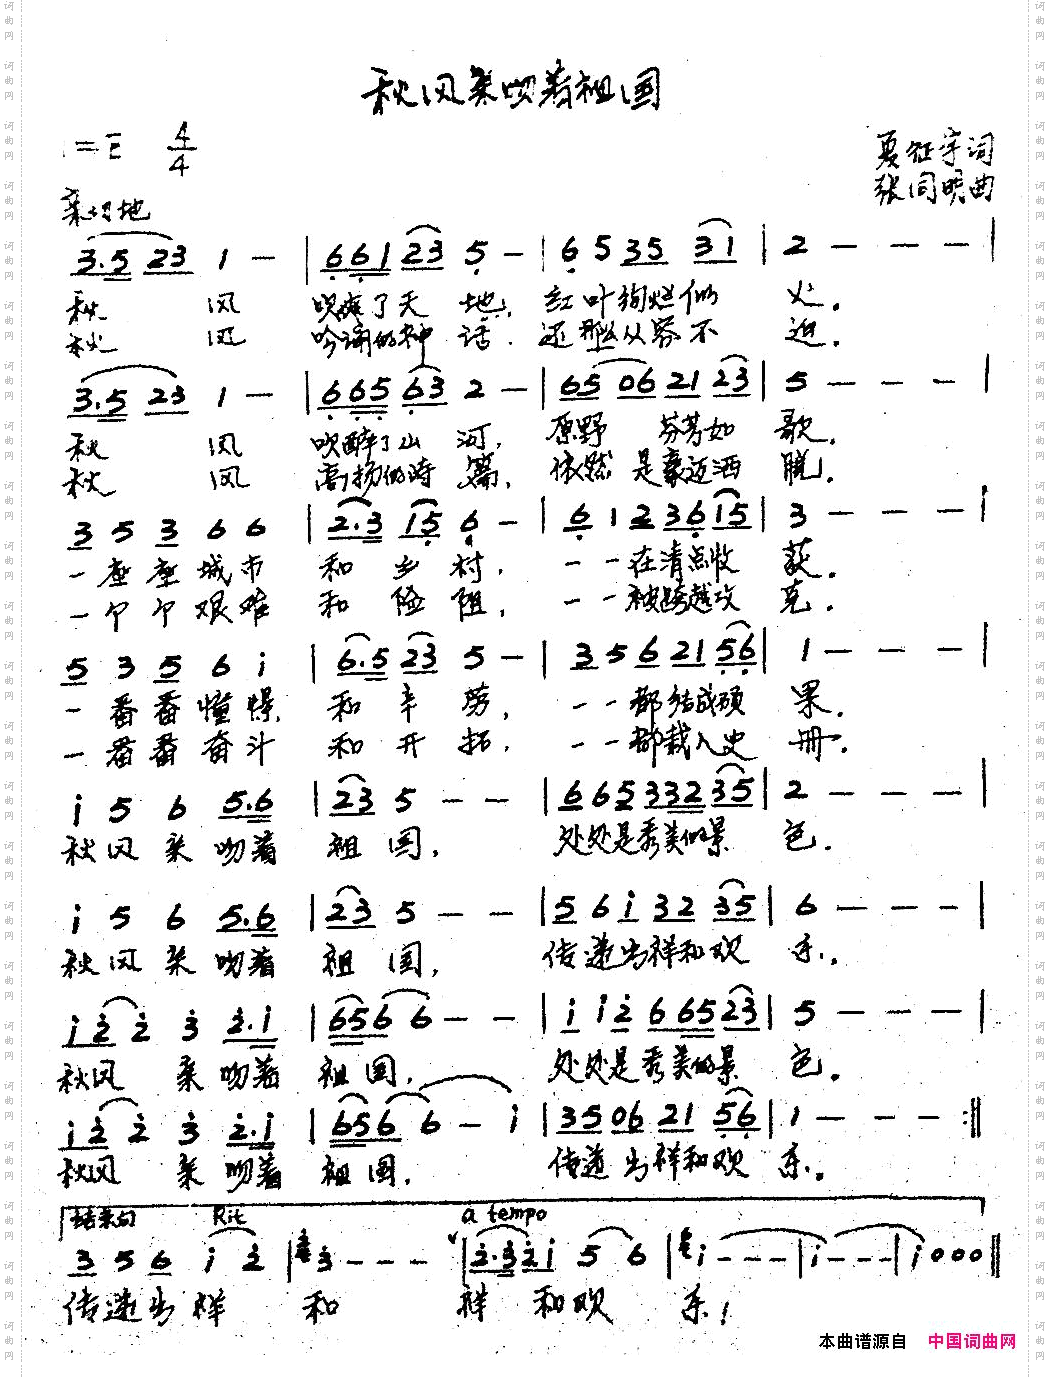 秋风亲吻着祖国
1=E 4/4
夏征宇词
张同明曲
亲切地
3.5 23 1 - | 661 23 5 - | 6 5 35 31 | 2 - - - |
秋 风 吹爽了天 地, 红叶绚烂似 火.
秋 风 吟诵的神 话. 还那么从容不 迫.
3.5 23 1 - | 665 63 2 - | 65 06 21 23 | 5 - - - |
秋 风 吹醉了山 河, 原野 芬芳如 歌.
秋 风 高扬的诗 篇, 依然 是豪迈洒 脱.
3 5 3 6 6 | 2.3 15 6 - | 6 1 2 3615 | 3 - - - |
一座座城市 和乡村, 一一在清点收 获.
一个个艰难 和险阻, 一一被跨越攻 克.
5 3 5 6 i | 6.5 23 5 - | 3 5 6 21 56 | 1 - - - |
一番番憧憬, 和辛劳, 一一都结成硕 果.
一番番奋斗 和开拓, 一一都载入史 册.
i 5 6 5.6 | 23 5 - - | 6 6 5 33235 | 2 - - - |
秋风亲吻着 祖国, 处处是秀美的景 色.
i 5 6 5.6 | 23 5 - - | 5 6 i 32 35 | 6 - - - |
秋风亲吻着 祖国, 传递出祥和欢 乐.
i 2 2 3 2.i | 656 6 - - | i i 2 6 65 23 | 5 - - - |
秋风 亲吻着 祖国, 处处是秀美的景 色.
i 2 2 3 2.i | 656 6 - i | 35 06 21 56 | 1 - - - :||
秋风 亲吻着 祖国. 传递 出祥和欢 乐.
结束句 Rit a tempo
3 5 6 i 2 | 3 - - - | 2.3 2i 5 6 | i - - - | i - - - | i 0 0 0 ||
传递出祥 和 祥和欢 乐!
本曲谱源自 中国词曲网